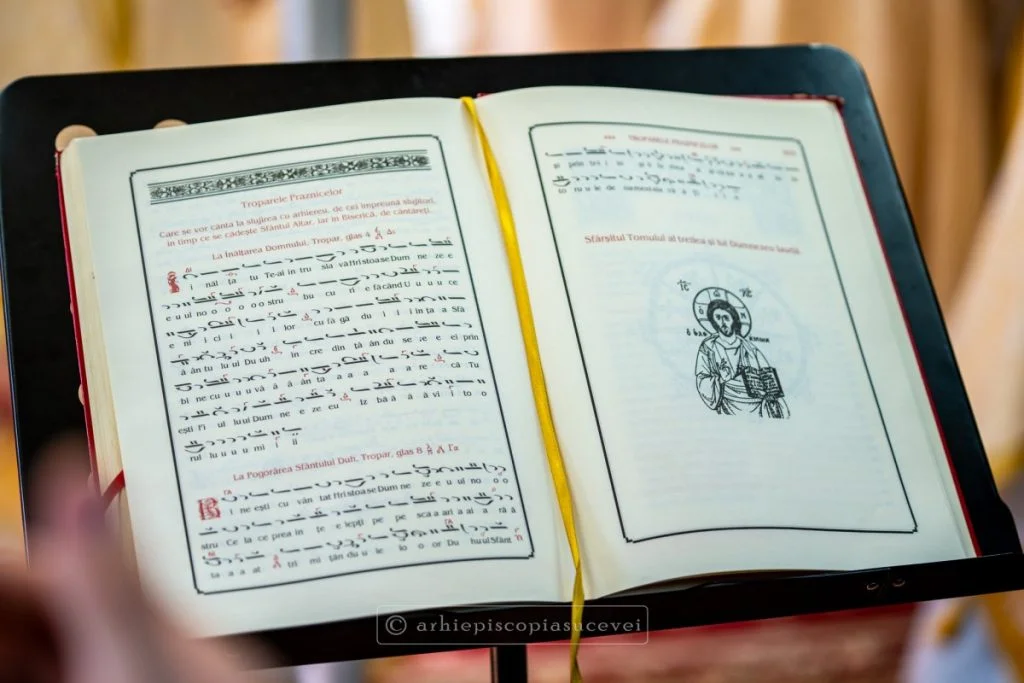 Troparele Praznicelor
Care se vor cânta la slujirea cu arhiereu, de cei împreună slujitori,
în timp ce se cădește Sfântul Altar, iar în Biserică, de cântăreți.
La Înălțarea Domnului, Tropar, glas 4
Î năl ța tu Te-ai în tru sla vă Hristoase Dum ne ze e
e u ul no o o o o o stru bu cu ri e făcând U u u u ce
e ni i ci i i i i lor cu fă gă du i i i in ța a Sfâ
â ân tu lu ul Du uh în cre din ța ân du se e e ei prin
bi ne cu u u u vâ â â ân ta a a a a a re că Tu
ești Fi ul lu ul Dum ne e ze eu Iz bă ă ă ă vi i to o
rul lu u u u u mi i ii
La Pogorârea Sfântului Duh, Tropar, glas 8
B i ne ești cu vân tat Hristoase Dum ne ze e u ul no o o
stru Ce la ce prea în țe e lepți pe pe sca a ari a ai a ră ă
ta a a at tri mi țân du u le lo o or Du hu ul Sfânt
TROPARELE PRAZNICELOR
și prin tri i în
Sfârșitul Tomului al treilea și lui Dumnezeu laudă
IC XC
© arhiepiscopiasucevei